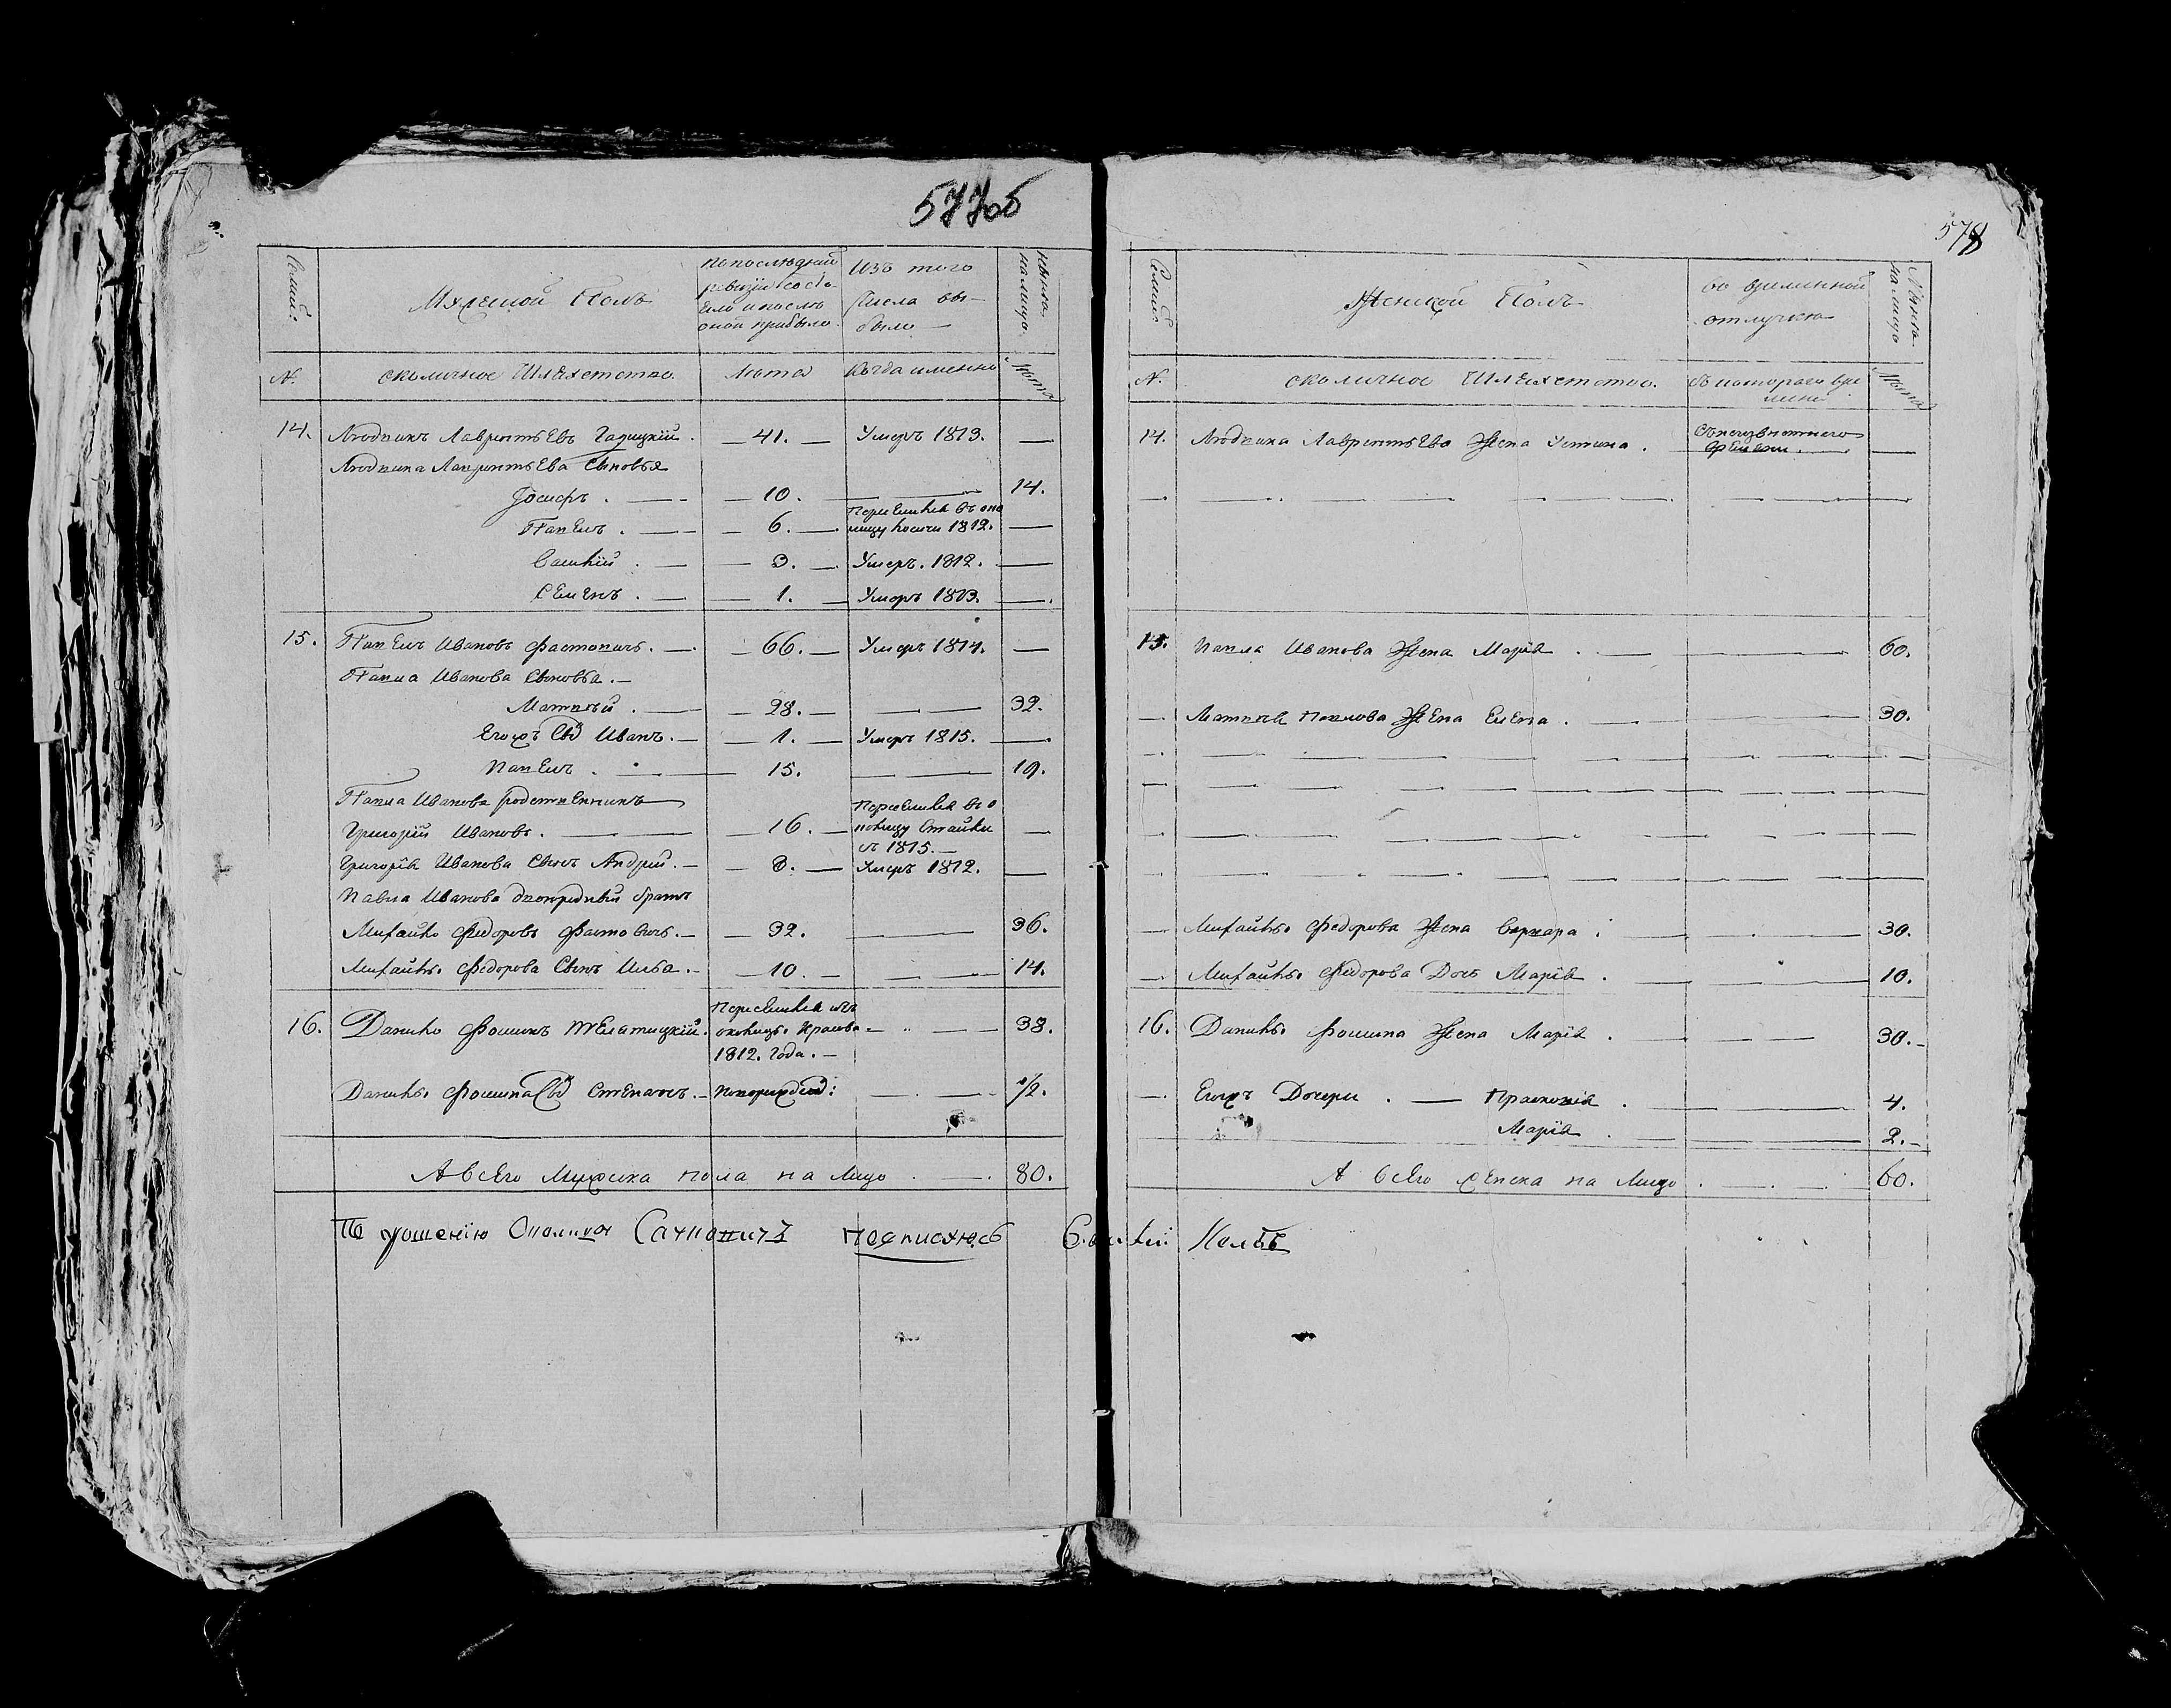 577об
Семьи.
Мужеской Полъ
По последней
ревизіи состо-
яло и после
оной прибыло.
Изъ того
Числа вы-
было
Ныне
на лицо.
№.
околичное Шляхетство.
Лета
Когда именно
Лета
14.
Людвикъ Лаврентьевъ Гадицкій. — 41. — Умеръ 1813. —
Людвика Лаврентьева Сыновья
Іосифъ . — — 10. — 14.
Павелъ . — — 6. — Переселился въ око
лицу 1812. —
Василій . — — 3. — Умеръ. 1812. —
Семенъ . — — 1. — Умеръ 1813. —
15. Павелъ Ивановъ Фастовичъ. — — 66. — Умеръ 1814. —
Павла Иванова Сыновья. —
Матвей . — — 28. — — 32.
Егожъ Сынъ Иванъ. — — 1. — Умеръ 1815. —
Павелъ . — 15. — 19.
Павла Иванова родственникъ
Григорій Ивановъ. — — 16. — Переселился въ о
колицу Стайки
въ 1815. —
Григорія Иванова Сынъ Андрей. — — 8. — Умеръ 1812. —
Павла Иванова двоюродный братъ
Михайло Федоровъ Фастовичъ. — — 32. — 36.
Михайлы Федорова Сынъ Илья. — — 10. — — 14.
16. Данило Фоминъ Телятицкій. Переселился изъ
околицы
1812. года. — — 38.
Данилы Фомина Сынъ Степанъ. — Новорожден: — 1/2.
А всего Мужска пола на лицо . — . 80.
По прошенію подписуюсь
578
Семьи
Женской Полъ
во временной
отлучке
Ныне
на лицо
№.
околичное Шляхетство.
Съ котораго вре
мени
Лета
14. Людвика Лаврентьева Жена Устина . Съ неизвестнаго
времени. —
15. Павла Иванова Жена Марія . — — 60.
— Матвея Павлова Жена Елена . — — 30.
— Михайлы Федорова Жена Варвара . — — 30.
— Михайлы Федорова Дочь Марія . — — 10.
16. Данилы Фомина Жена Марія . — — 30. —
— Егожъ Дочери . — Прасковія . — 4.
Марія . — 2. —
А всего женска на лицо . — . 60.